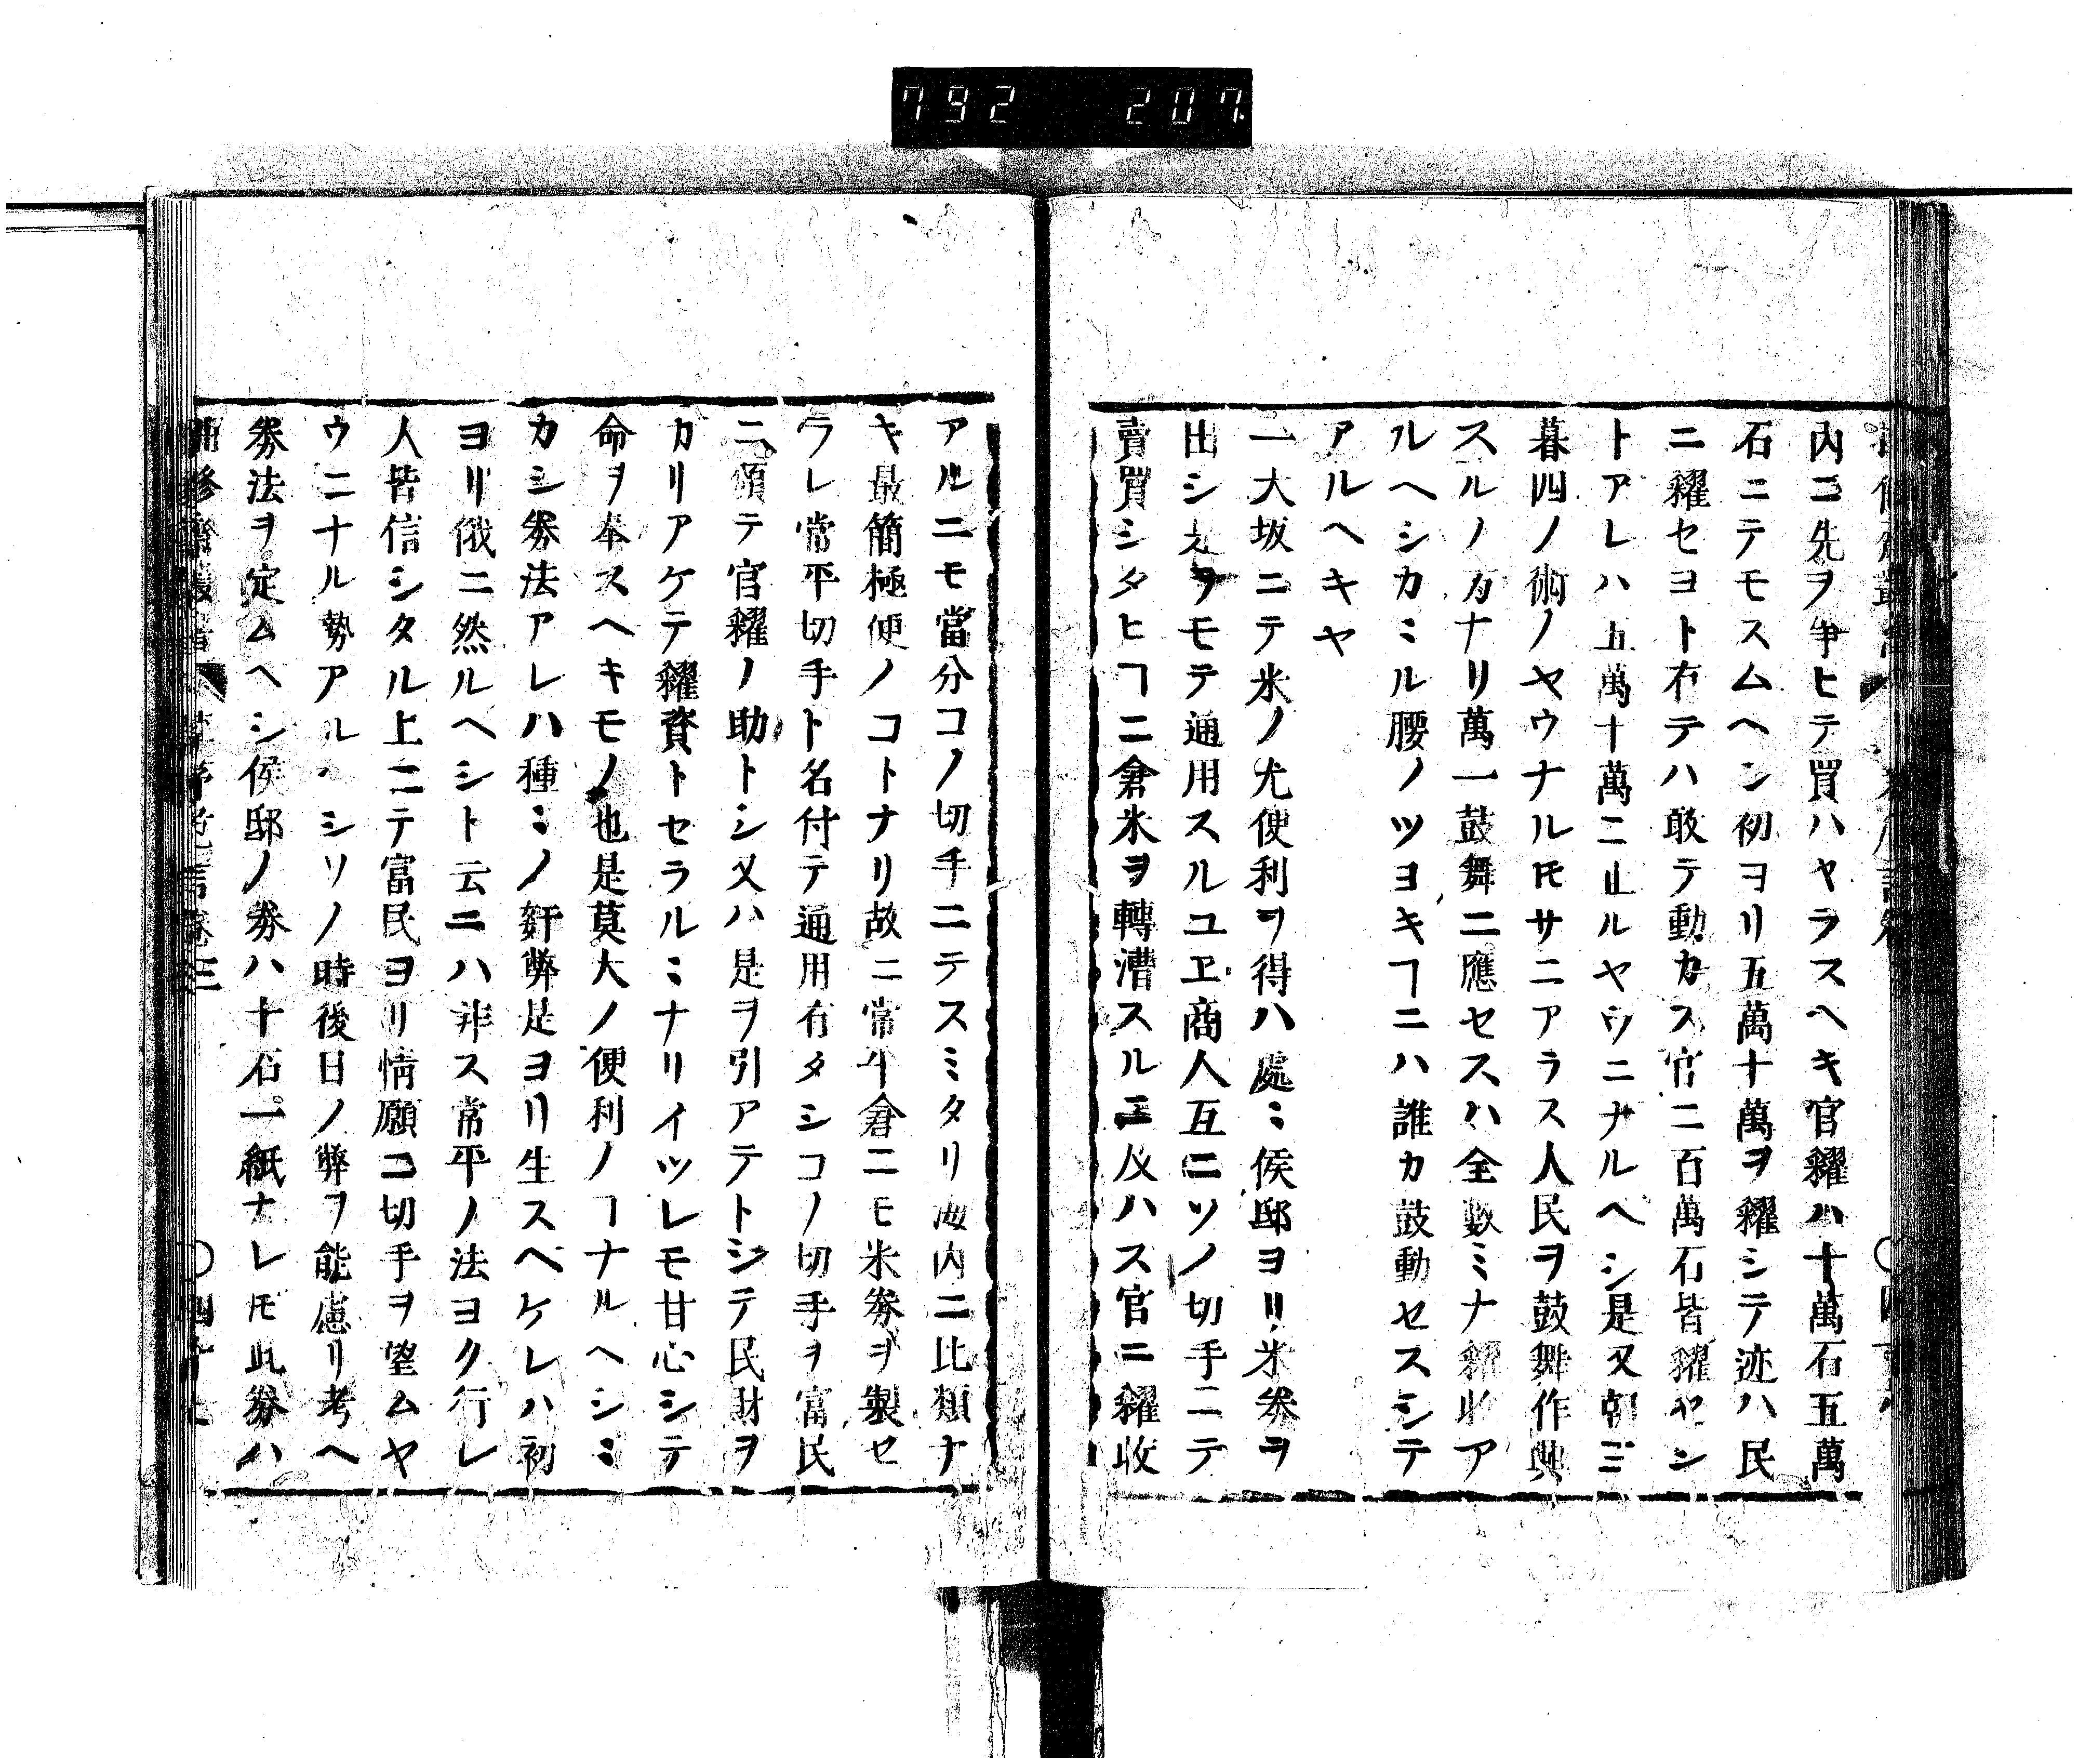 792 207
内ニ先ヲ爭ヒテ買ハヤラスヘキ官糴ハ十萬石五萬
石ニテモスムヘシ初ヨリ五萬十萬ヲ糴シテ迹ハ民
ニ糴セヨト有テハ敢テ動カス官ニ百萬石皆糴セシ
トアレハ五萬十萬ニ止ルヤウニナルヘシ是又朝三
暮四ノ術ノヤウナルモサニアラス人民ヲ鼓舞作興
スルノ方ナリ萬一鼓舞ニ應セスハ全數ミナ糴收ア
ルヘシカミル腰ノツヨキヿニハ誰カ鼓動セスシテ
アルヘキヤ
一大坂ニテ米ノ尤便利ヲ得ハ處〻侯邸ヨリ米券ヲ
出シ是ヲモテ通用スルユヱ商人互ニソノ切手ニテ
賣買シタヒヿニ倉米ヲ轉漕スルニ及ハス官ニ糴收
アルニモ當分コノ切手ニテスミタリ海内ニ比類ナ
キ最簡極便ノコトナリ故ニ常平倉ニモ米券ヲ製セ
ラレ常平切手ト名付テ通用有タシコノ切手ヲ富民
ニ頒テ官糴ノ助トシ又ハ是ヲ引アテトシテ民財ヲ
カリアケテ糴資トセラルミナリイツレモ甘心シテ
命ヲ奉スヘキモノ也是莫大ノ便利ノヿナルヘシミ
カシ券法アレハ種〻ノ奸弊是ヨリ生スヘケレハ初
ヨリ俄ニ然ルヘシト云ニハ非ス常平ノ法ヨク行レ
人皆信シタル上ニテ富民ヨリ情願コ切手ヲ望ムヤ
ウニナル勢アルヘシソノ時後日ノ弊ヲ能慮リ考ヘ
券法ヲ定ムヘシ侯邸ノ券ハ十石一紙ナレモ此券ハ